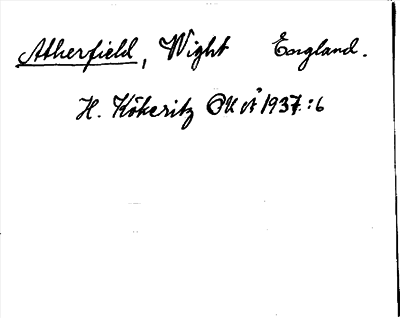 Atherfield, Wight England.
H. Kökeritz UUÅ 1937:6